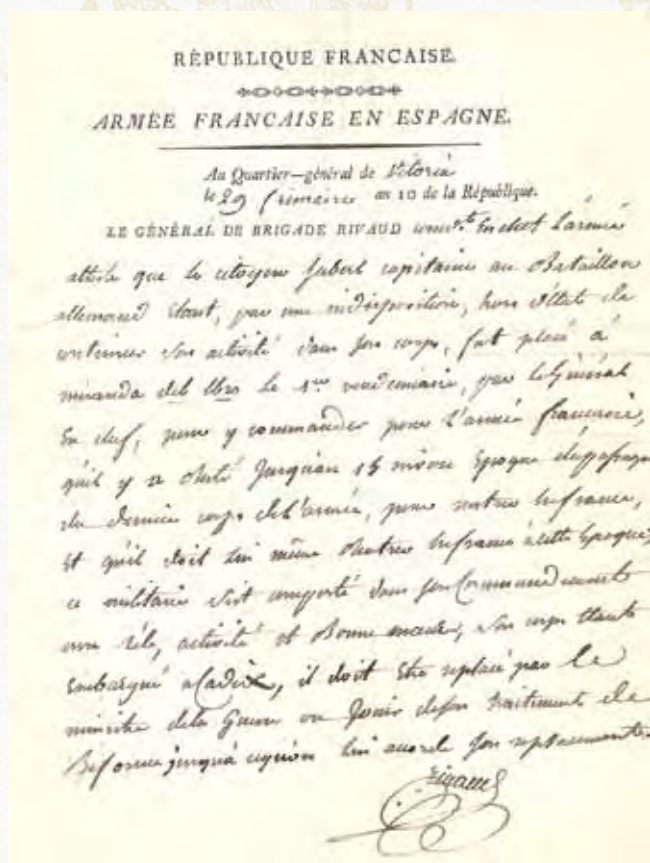 RÉPUBLIQUE FRANCAISE.
ARMÉE FRANCAISE EN ESPAGNE.
Au Quartier-général de Vitoria
le 29 frimaire an 10 de la République.
LE GÉNÉRAL DE BRIGADE RIVAUD en chef l'armée
atteste que le citoyen Jubert capitaine au Bataillon
allemand étant, par une indisposition, hors d'état de
continuer son activité dans son corps, fut placé à
miranda del Ebro le 1er vendemiaire, par le Général
En chef, pour y commander pour l'armée françoise,
qu'il y a resté jusqu'au 15 nivose Epoque du passage
du dernier corps de l'armée, pour rentrer en france,
Et qu'il doit lui même rentrer en france à cette Epoque,
ce militaire s'est comporté dans son Commandement
avec zèle, activité et Bonne , son corps étant
Embarqué a Cadix, il doit être replacé par le
ministre dela Guerre ou Jouir de son traitement de
Reforme jusqu'à lui accorde son replacement
Rivaud